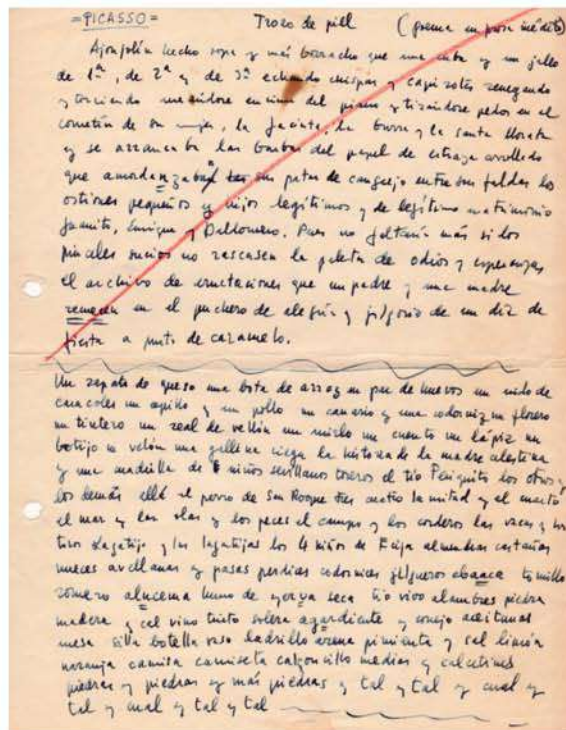 =PICASSO= Trozo de piell (poema en prosa inédito)
Ajonjolín hecho sopa y más borracho que una cuba y un jollo
de 1ª, de 2ª y de 3ª echando chispas y capirotes renegando
y torciendo encima del piano y tirándose pedos en el
cornetín de su mujer, la Jacinta, la burra y la santa
y se arrancaba las barbas del papel de estraza arrollado
que amordazaban sus patas de cangrejo entre sus faldas los
ostiones pequeños y hijos legítimos y de legítimo matrimonio
Juanito, Enrique y Baldomero. Pues no faltaría más si los
pinceles sucios no rascasen la paleta de odios y esperanzas
el archivo de eructaciones que un padre y una madre
remecen en el puchero de alegría y jolgorio de un día de
fiesta a punto de caramelo.
Un zapato de queso una bota de arroz un par de huevos un nido de
caracoles un apio y un pollo un canario y una codorniz un florero
un tintero un real de vellón un mirlo un cuento un lápiz un
botijo un velón una gallina ciega la historia de la madre celestina
y una madrilla de 6 niños sevillanos toreros el tío Periquito los otros y
los demás allí el perro de San Roque tres cuatro la mitad y el cuarto
el mar y las olas y los peces el campo y los corderos las vacas y los
toros Lagartijo y las lagartijas los 4 niños de Écija almendras castañas
nueces avellanas y pasas perdices codornices jilgueros abaaca tomillo
romero alucema humo de yerva seca tío vivo alambres piedra
madera y cal vino tinto solera agardiente y conejo aceitunas
mesa silla botella vaso ladrillo arena pimienta y sal limón
naranja camisa camiseta calzoncillo medias y calcetines
piedras y piedras y más piedras y tal y tal y cual y
tal y cual y tal y tal